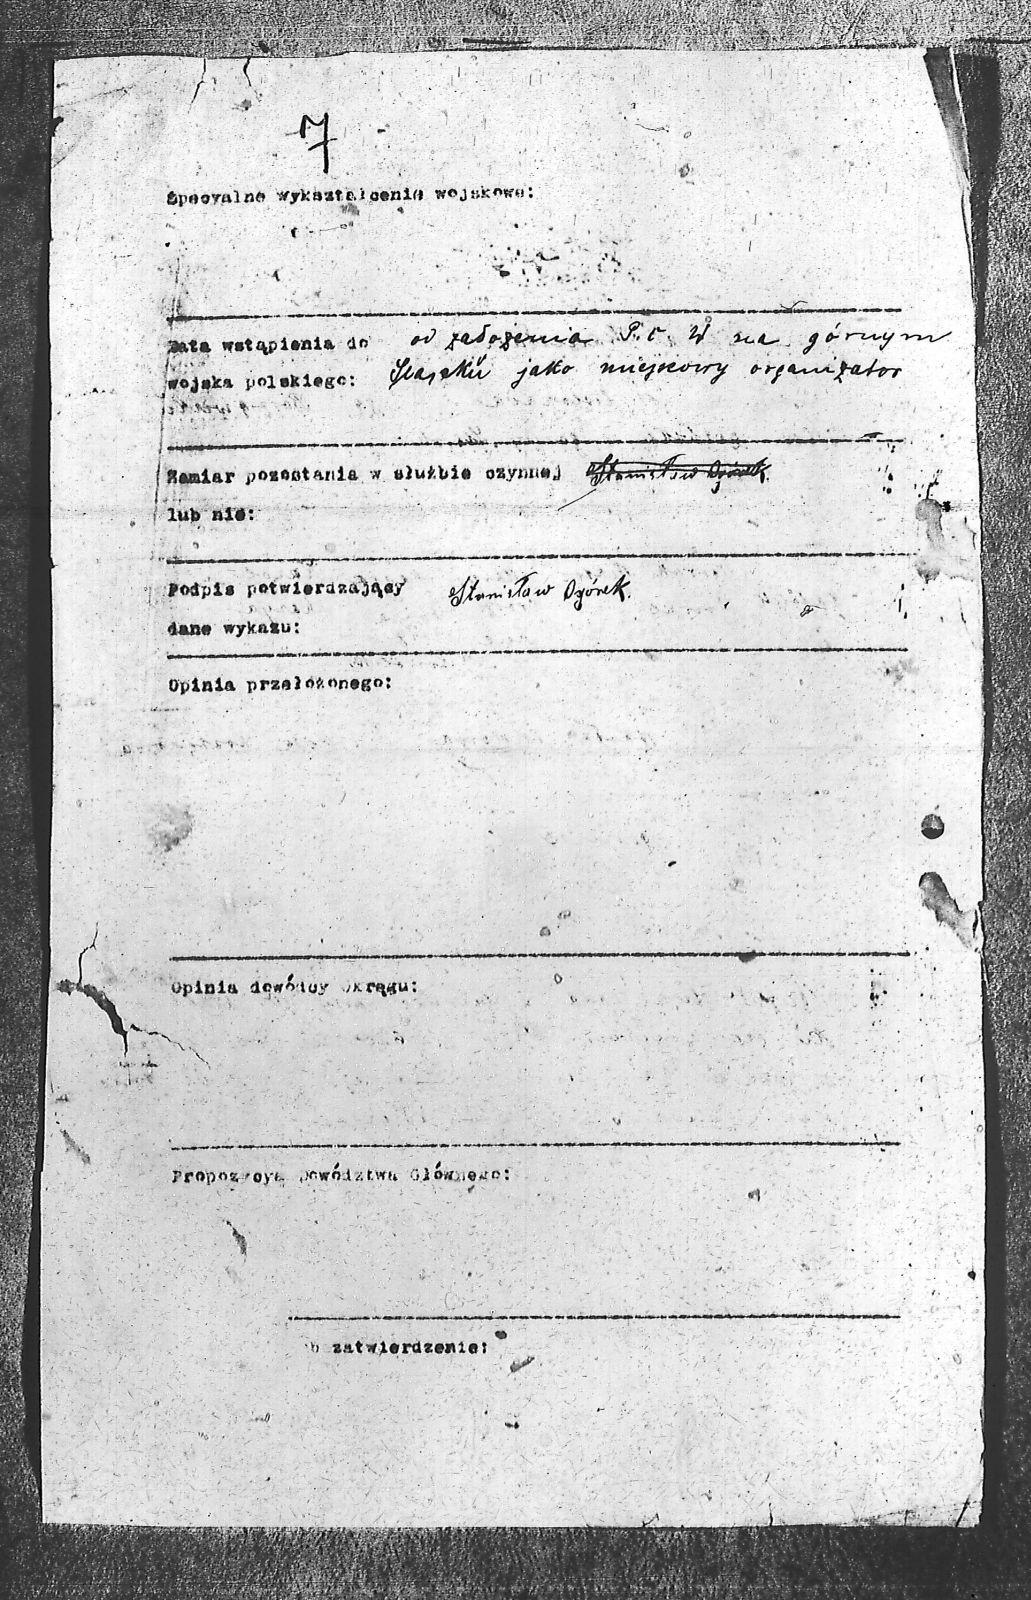 7
Specyalne wykształcenie wojskowe:
Data wstąpienia do od założenia P. O. W na górnym
wojska polskiego: Śląskŭ jako miejscowy organizator
Zamiar pozostania w służbie czynnej Stanisław Ogórek.
lub nie:
Podpis potwierdzający Stanisław Ogórek.
dane wykazu:
Opinia przełożonego:
Opinia dowódcy Okręgu:
Propozycya Dowództwa Głównego:
zatwierdzenie: